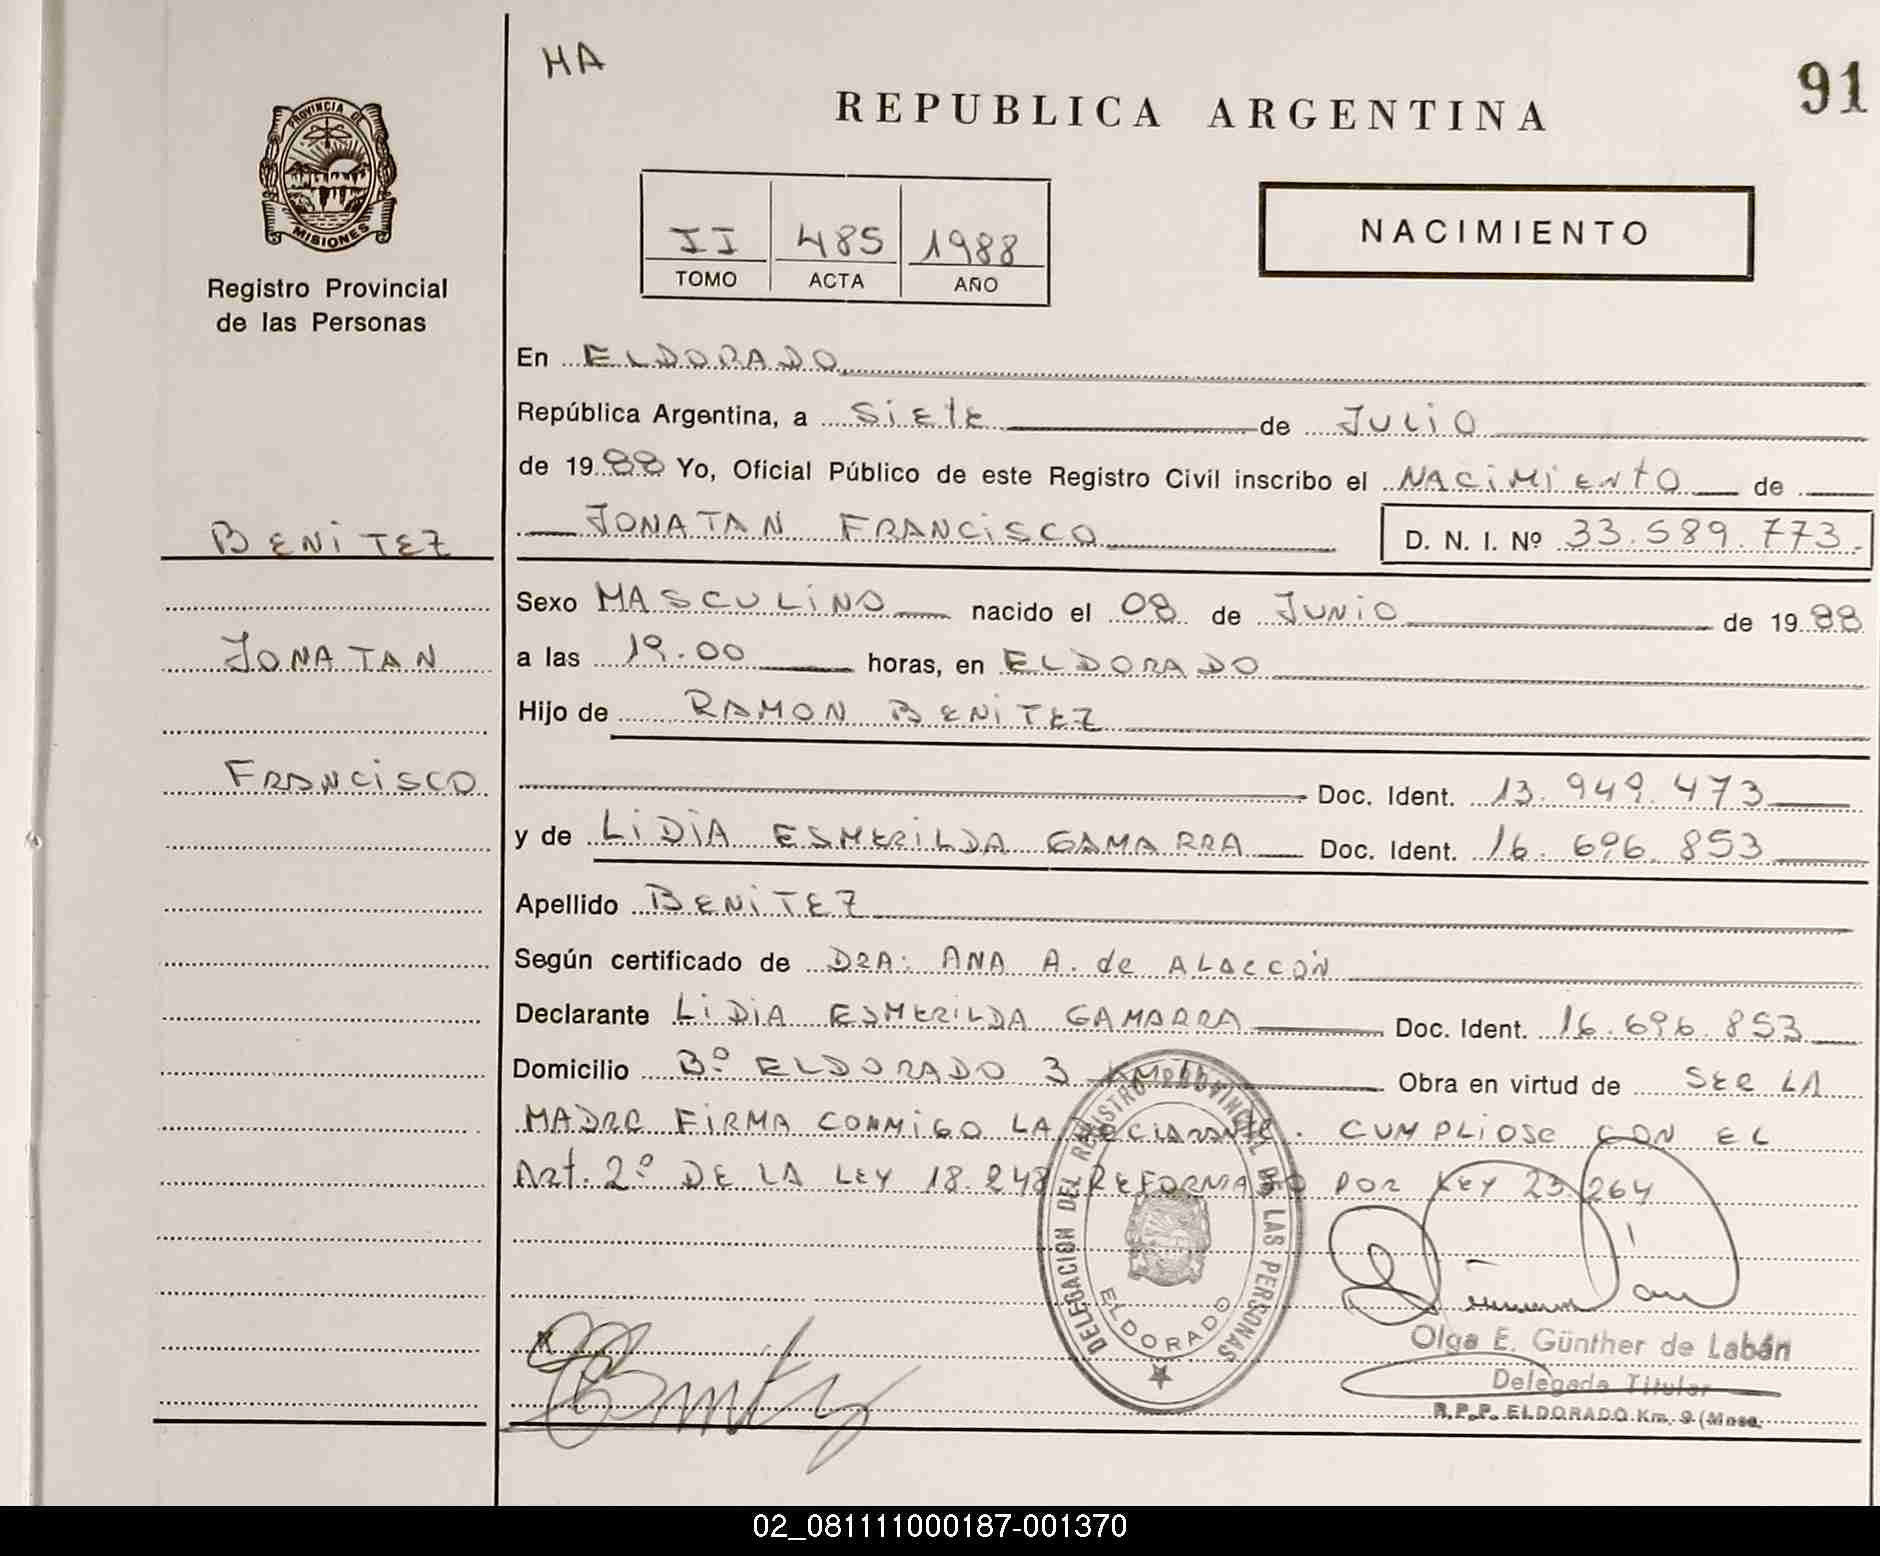 HA
91
REPUBLICA ARGENTINA
PROVINCIA DE
MISIONES
Registro Provincial
de las Personas
II 485 1988
TOMO ACTA AÑO
NACIMIENTO
En ELDORADO
República Argentina, a Siete de Julio
de 1988 Yo, Oficial Público de este Registro Civil inscribo el NACIMIENTO de
BENITEZ
JONATAN FRANCISCO D. N. I. Nº 33.589.773.
Sexo MASCULINO nacido el 08 de JUNIO de 1988
JONATAN
a las 19.00 horas, en ELDORADO
Hijo de RAMON BENITEZ
FRANCISCO
Doc. Ident. 13.949.473
y de LIDIA ESMERILDA GAMARRA Doc. Ident. 16.696.853
Apellido BENITEZ
Según certificado de DRA: ANA A. de ALARCON
Declarante LIDIA ESMERILDA GAMARRA Doc. Ident. 16.696.853
Domicilio Bº ELDORADO 3 Obra en virtud de SER LA
MADRE FIRMA CONMIGO LA DECLARANTE. CUMPLIOSE CON EL
Art. 2º DE LA LEY 18.248 REFORMADO POR LEY 23.264
DELEGACION DEL REGISTRO PROVINCIAL DE LAS PERSONAS
ELDORADO
Olga E. Günther de Labán
Delegada Titular
R.P.P. ELDORADO Km. 9 (Mnes.
02_081111000187-001370